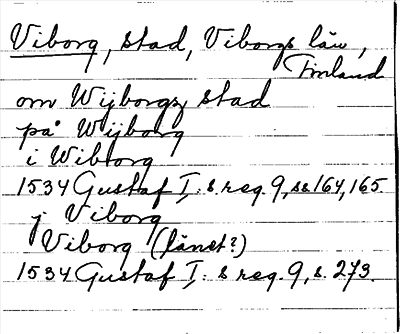 Viborg, stad, Viborgs län,
Finland
om Wijborgz stad
på Wijborg
i Wiborg
1534 Gustaf I: s reg. 9, ss 164, 165.
j Viborg
Viborg (länet?)
1534 Gustaf I: s reg. 9, s. 273.